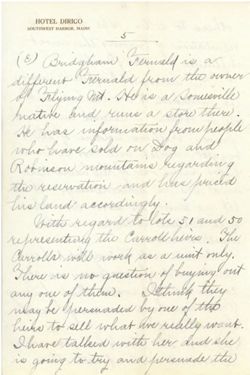 HOTEL DIRIGO
SOUTHWEST HARBOR, MAINE
5
(c) Bridgham Fernald is a
different Fernald from the owner
of Flying Mt. He is a Somesville
native and runs a store there.
He has information from people
who have sold on Dog and
Robinson mountains regarding
the reservation and has priced
his land accordingly.
With regard to lots 51 and 50
representing the Carroll heirs. The
Carrolls will work as a unit only.
There is no question of buying out
any one of them. I think they
may be persuaded by one of the
heirs to sell what we really want.
I have talked with her and she
is going to try and persuade the